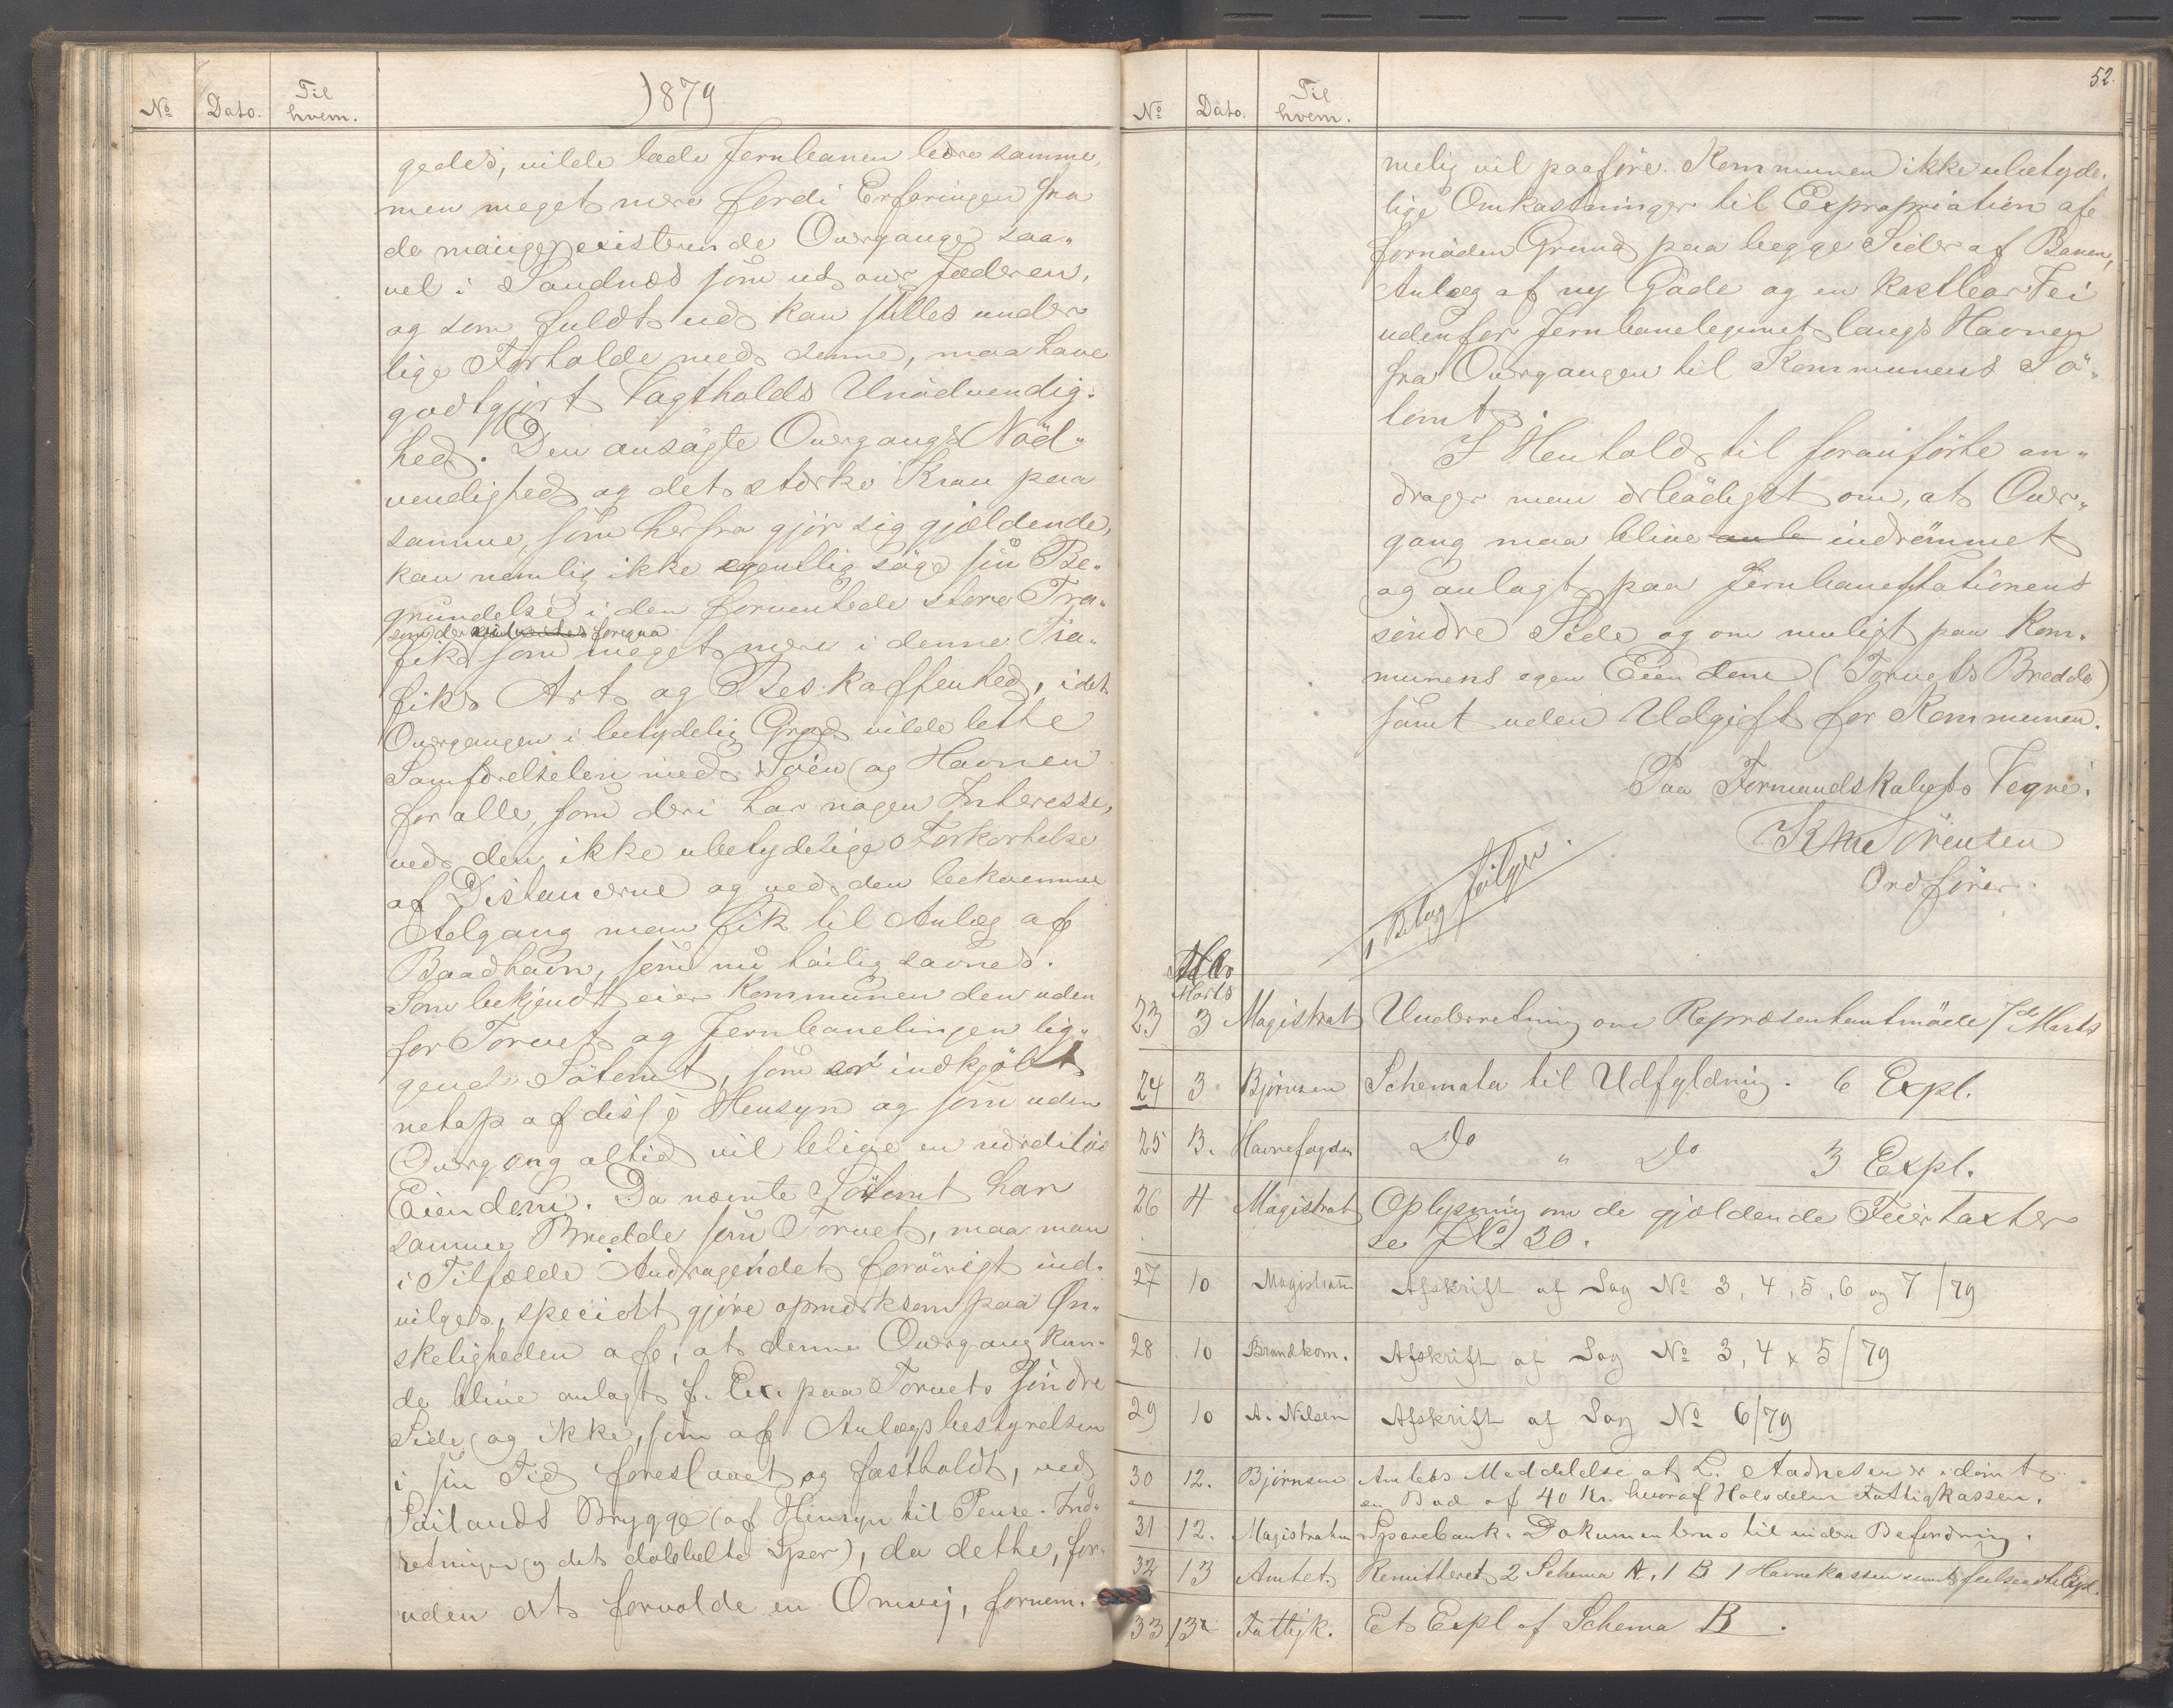 No Dato. Til hvem. 1879
gedes, vilde lade Jernbanen bære samme,
men meget mere fordi Erfaringen fra
de mange existerende Overgange saa-
vel i Sandnæs som ud over Jæderen,
og som fuldt ud kan stilles under
lige Forholde med denne, maa have
godtgjort Vagtholds Unødvendig-
hed. Den ansøgte Overgangs Nød-
vendighed og det stærke Krav paa
samme, som herfra gjør sig gjældende,
kan nemlig ikke egentlig søge sin Be-
grundelse i den forventede store Tra-
som der foregaa
fik som meget mere i denne Tra-
fiks Art og Beskaffenhed, idet
Overgangen i betydelig Grad vilde lette
Samfærdselen med Søen og Havnen
for alle, som deri har nogen Interesse,
ved den ikke ubetydelige Forkortelse
af Distancerne og ved den bekvemme
Adgang man fik til Anlæg af
Baadhavn, som nu høilig savnes.
Som bekjendt eier Kommunen den uden
for Torvet og Jernbanelinjen lig-
gende Søtomt, som er indkjøbt
netop af disse Hensyn og som uden
Overgang altid vil blive en
Eiendom. Da nævnte Søtomt har
samme Bredde som Torvet, maa man
i Tilfælde Andragendet forøvrigt ind-
vilges, specielt gjøre opmærksom paa Øn-
skeligheden af, at denne Overgang kun-
de blive anlagt f. Ex. paa Torvets søndre
Side og ikke, som af Anlægsbestyrelsen
i sin Tid foreslaaet og fastholdt, ved
Brygge (af Hensyn til Pense-Ind-
retningen og det dobbelte Spor), da dette, for-
uden at forvolde en Omvej, fornem-
No Dato. Til hvem. 52.
melig vil paaføre Kommunen ikke ubetyde-
lige Omkostninger til Expropriation af
fornøden Grund paa begge Sider af Banen,
Anlæg af ny Gade og en kostbar Vei
udenfor Jernbanelegemet langs Havnen
fra Overgangen til Kommunens Sø-
tomt.
I Henhold til foranførte an-
drager man ærbødigst om, at Over-
gang maa blive anle indrømmet
og anlagt paa Jernbanestationens
søndre Side og om muligt paa Kom-
munens egen Eiendom (Torvets Bredde)
samt uden Udgift for Kommunen.
Paa Formandskabets Vegne.
Ordfører.
1 Bilag følger.
Marts
23 3 Magistrat Underretning om Repræsentantmøde 7de Marts
24 3 Bjørnsen Schemata til Udfyldning. 6 Expl.
25 3. Havnefogden Do " Do 3 Expl.
26 4 Magistrat Oplysning om de gjældende Feiertaxter
se No 30.
27 10 Magistraten Afskrift af Sag No 3, 4, 5, 6 og 7/79
28 10 Brandkom. Afskrift af Sag No 3, 4 & 5/79
29 10 A. Nilsen Afskrift af Sag No 6/79
30 12. Bjørnsen Amtets Meddelelse at L. Aadnesen er idømt
en Bod af 40 Kr. hvoraf Halvdelen Fattigkassen.
31 12. Magistraten Sparebank-Dokumenterne til videre Befordring.
32 13 Amtet Remitteret 2 Schema A, 1 B 1 Havnekassen samt Expl.
33 13 Fattigk. Et Expl af Schema B.